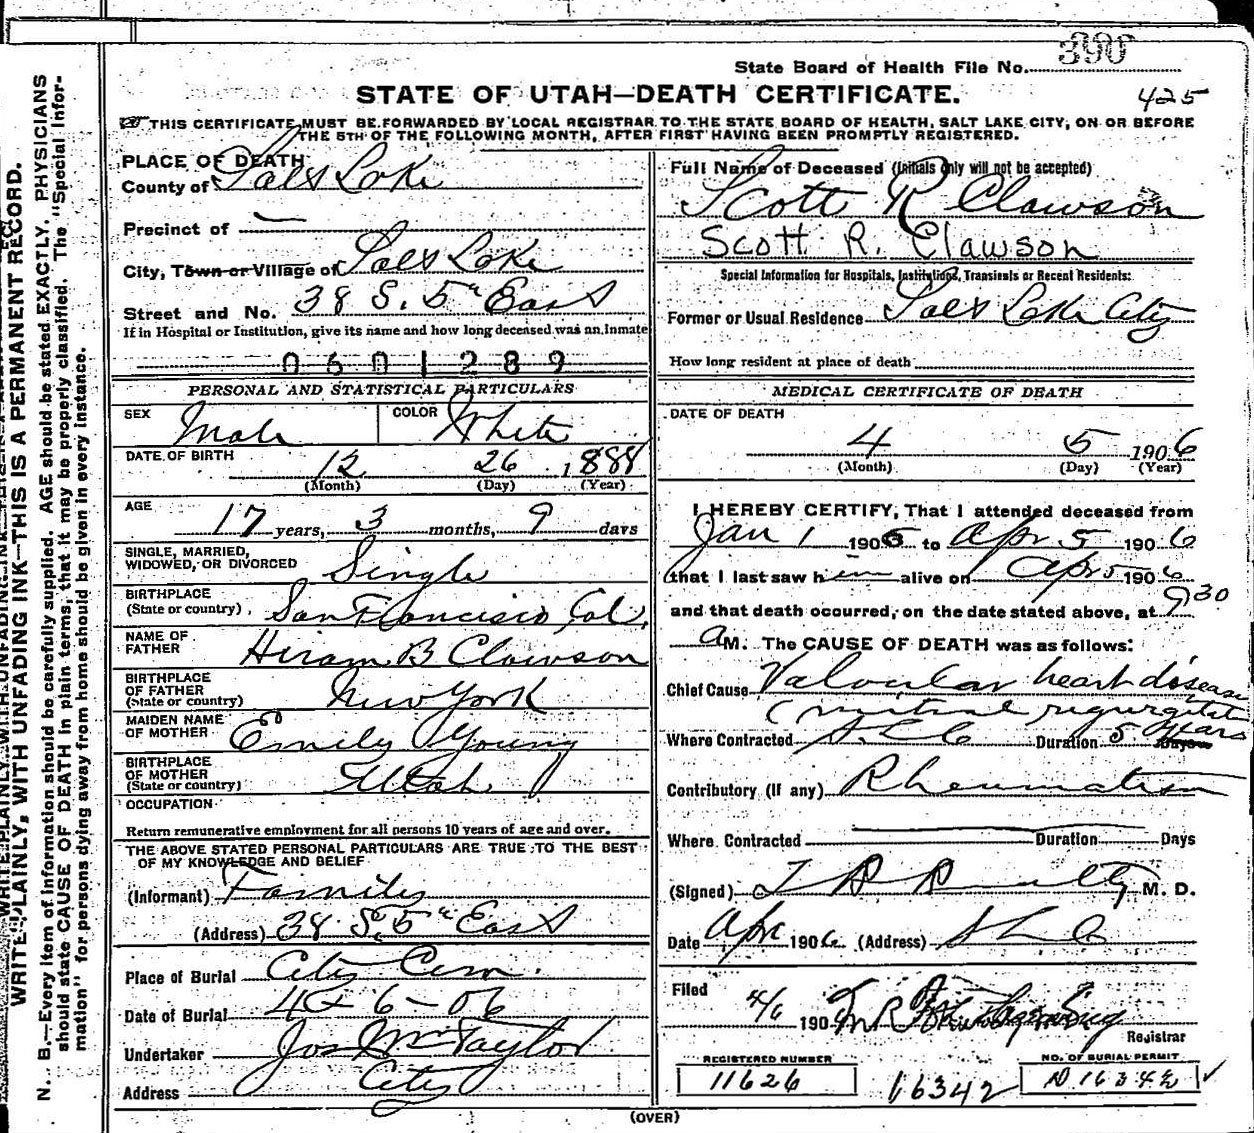 State Board of Health File No. 390
STATE OF UTAH—DEATH CERTIFICATE.
425
THIS CERTIFICATE MUST BE FORWARDED BY LOCAL REGISTRAR TO THE STATE BOARD OF HEALTH, SALT LAKE CITY, ON OR BEFORE
THE 5TH OF THE FOLLOWING MONTH, AFTER FIRST HAVING BEEN PROMPTLY REGISTERED.
PLACE OF DEATH
County of Salt Lake
Precinct of —
City, Town or Village of Salt Lake
Street and No. 38 S. 5th East
If in Hospital or Institution, give its name and how long deceased was an Inmate
0601289
PERSONAL AND STATISTICAL PARTICULARS
SEX Male COLOR White
DATE OF BIRTH 12 26 1888
(Month) (Day) (Year)
AGE 17 years, 3 months, 9 days
SINGLE, MARRIED,
WIDOWED, OR DIVORCED Single
BIRTHPLACE
(State or country) San Francisco, Cal.
NAME OF
FATHER Hiram B Clawson
BIRTHPLACE
OF FATHER
(State or country) New York
MAIDEN NAME
OF MOTHER Emily Young
BIRTHPLACE
OF MOTHER
(State or country) Utah
OCCUPATION
Return remunerative employment for all persons 10 years of age and over.
THE ABOVE STATED PERSONAL PARTICULARS ARE TRUE TO THE BEST
OF MY KNOWLEDGE AND BELIEF
(Informant) Family
(Address) 38 So 5th East
Place of Burial City Cem.
Date of Burial 4-6-06
Undertaker Jos Wm Taylor
Address City
Full Name of Deceased (Initials only will not be accepted)
Scott R Clawson
Scott R. Clawson
Special Information for Hospitals, Institutions, Transients or Recent Residents:
Former or Usual Residence Salt Lake City
How long resident at place of death
MEDICAL CERTIFICATE OF DEATH
DATE OF DEATH
4 5 1906
(Month) (Day) (Year)
I HEREBY CERTIFY, That I attended deceased from
Jan 1 1906 to Apr 5 1906
that I last saw him alive on Apr 5 1906
and that death occurred, on the date stated above, at 9 30
a M. The CAUSE OF DEATH was as follows:
Chief Cause Valvular heart disease
(mitral regurgitation
Where Contracted S.L.C Duration 5 years Days
Contributory (If any) Rheumatism
Where Contracted Duration Days
(Signed) M. D.
Date Apr 1906 (Address) S L C
Filed
4/6 1906
Registrar
REGISTERED NUMBER
11626
16342
NO. OF BURIAL PERMIT
N 16342
(OVER)
WRITE PLAINLY, WITH UNFADING INK—THIS IS A PERMANENT RECORD.
N. B.—Every item of information should be carefully supplied. AGE should be stated EXACTLY. PHYSICIANS
should state CAUSE OF DEATH in plain terms, that it may be properly classified. The "Special Infor-
mation" for persons dying away from home should be given in every instance.